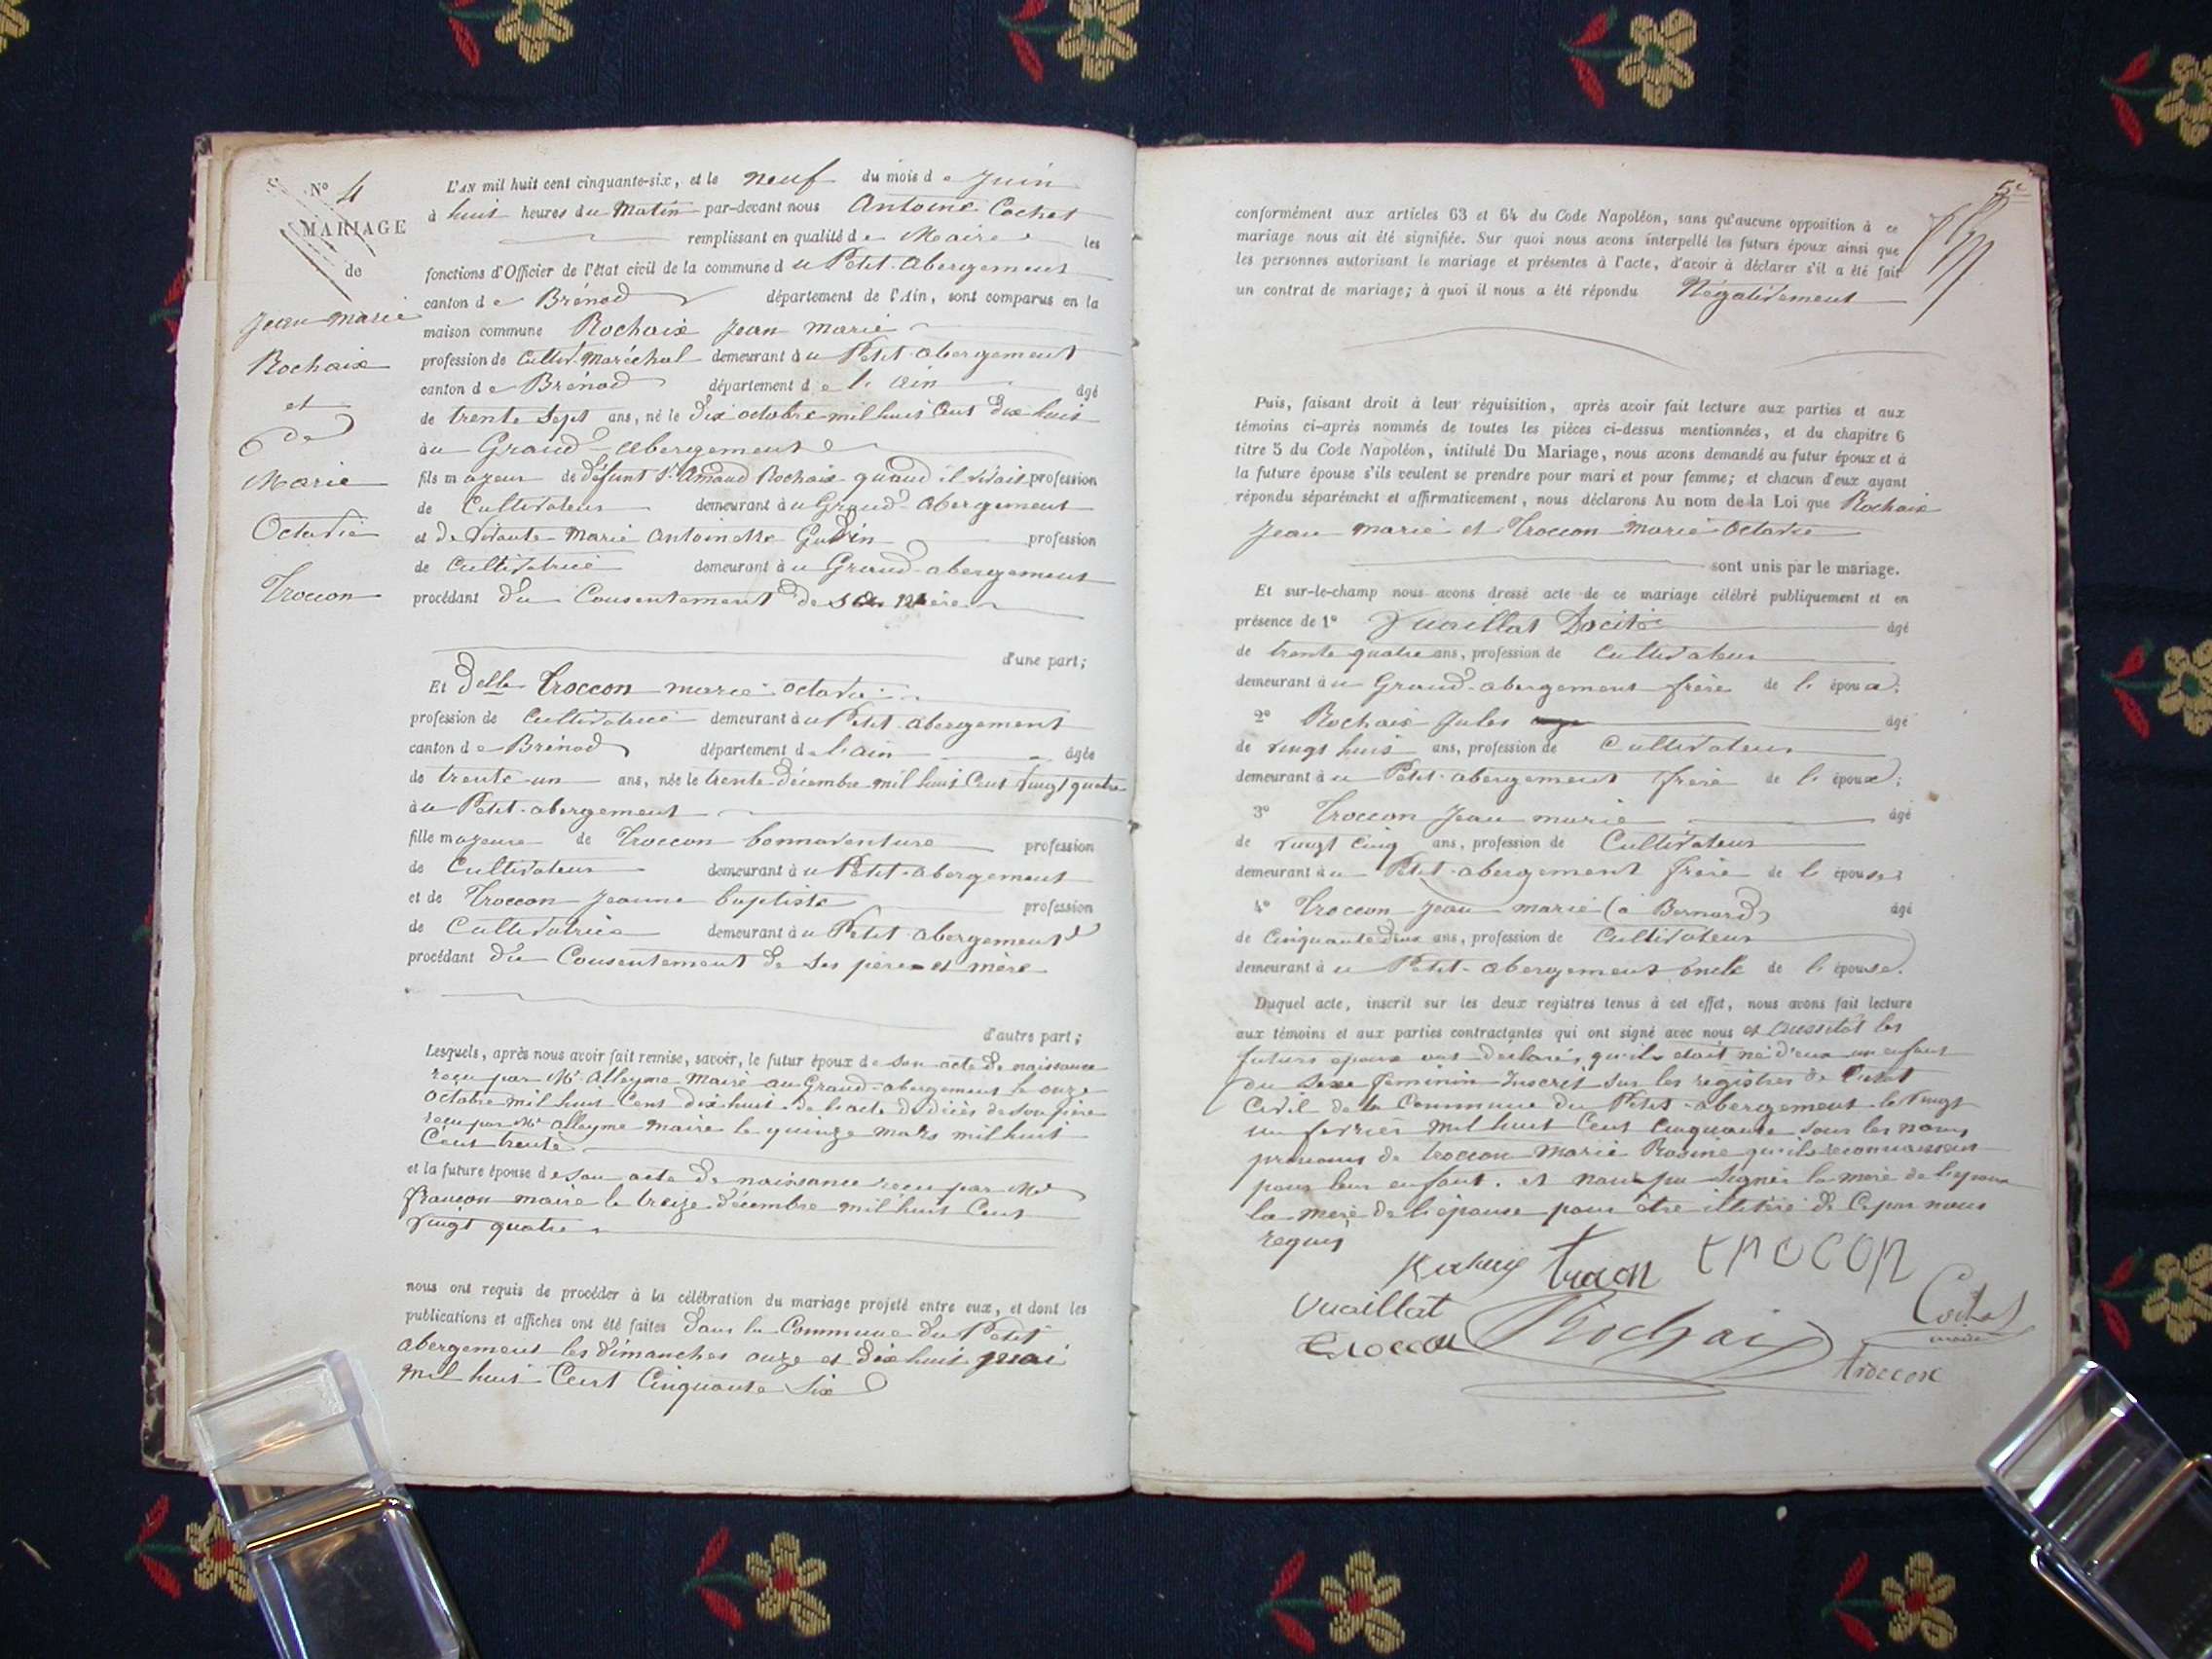 N° 4
MARIAGE
de
Jean marie
Rochaix
et
de
Marie
Octavie
Troccon
L'AN mil huit cent cinquante-six, et le neuf du mois de Juin
à huit heures du Matin par-devant nous Antoine Cochet
remplissant en qualité de Maire les
fonctions d'Officier de l'état civil de la commune du Petit-Abergement
canton de Brénod département de l'Ain, sont comparus en la
maison commune Rochaix Jean marie
profession de Cultiv. Maréchal demeurant au Petit-abergement
canton de Brénod département de l'ain âgé
de trente sept ans, né le dix octobre mil huit Cent dix-huit
au Grand-abergement
fils majeur de défunt St Amand Rochaix quand il vivait profession
de Cultivateur demeurant au Grand-Abergement
et de vivante Marie Antoinette profession
de Cultivatrice demeurant au Grand-abergement
procédant du Consentement de sa mère
d'une part;
Et delle Troccon marie octavie
profession de Cultivatrice demeurant au Petit-abergement
canton de Brénod département de l'ain âgée
de trente un ans, née le trente décembre mil huit Cent vingt quatre
au Petit-abergement
fille majeure de Troccon bonnaventure profession
de Cultivateur demeurant au Petit-abergement
et de Troccon Jeanne baptiste profession
de Cultivatrice demeurant au Petit abergement
procédant du Consentement de ses père et mère
d'autre part;
Lesquels, après nous avoir fait remise, savoir, le futur époux de son acte de naissance
reçu par Mr Alleyme Maire au Grand-abergement le onze
octobre mil huit Cent dix huit de l'acte de décès de son père
reçu par Mr Alleyme maire le quinze mars mil huit
Cent trente
et la future épouse de son acte de naissance reçu par Mr
françon maire le treize décembre mil huit Cent
vingt quatre
nous ont requis de procéder à la célébration du mariage projeté entre eux, et dont les
publications et affiches ont été faites dans la Commune du Petit
abergement les dimanches onze et dix huit mai
mil huit Cent Cinquante Six
5e
conformément aux articles 63 et 64 du Code Napoléon, sans qu'aucune opposition à ce
mariage nous ait été signifiée. Sur quoi nous avons interpellé les futurs époux ainsi que
les personnes autorisant le mariage et présentes à l'acte, d'avoir à déclarer s'il a été fait
un contrat de mariage; à quoi il nous a été répondu Négativement
Puis, faisant droit à leur réquisition, après avoir fait lecture aux parties et aux
témoins ci-après nommés de toutes les pièces ci-dessus mentionnées, et du chapitre 6
titre 5 du Code Napoléon, intitulé Du Mariage, nous avons demandé au futur époux et à
la future épouse s'ils veulent se prendre pour mari et pour femme; et chacun d'eux ayant
répondu séparément et affirmativement, nous déclarons Au nom de la Loi que Rochaix
Jean marie et Troccon marie Octavie
sont unis par le mariage.
Et sur-le-champ nous avons dressé acte de ce mariage célébré publiquement et en
présence de 1° Vuaillat âgé
de trente quatre ans, profession de Cultivateur
demeurant au Grand-abergement frère de l'époux;
2° Rochaix Jules âgé
de vingt huit ans, profession de Cultivateur
demeurant au Petit-abergement frère de l'époux;
3° Troccon Jean marie âgé
de vingt cinq ans, profession de Cultivateur
demeurant au Petit-abergement frère de l'épouse
4° Troccon Jean-marie (à Bernard) âgé
de Cinquante deux ans, profession de Cultivateur
demeurant au Petit-abergement oncle de l'épouse.
Duquel acte, inscrit sur les deux registres tenus à cet effet, nous avons fait lecture
aux témoins et aux parties contractantes qui ont signé avec nous et aussitôt les
futurs époux ont déclaré, qu'il etait né d'eux un enfant
du sexe féminin Inscrit sur les registres de l'etat
Civil de la Commune du Petit-abergement le vingt
un fevrier mil huit Cent Cinquante sous les noms
prenoms de troccon Marie Rosine qu'ils reconnaissent
pour leur enfant. et n'ont pu signer la mère de l'epoux
la mère de l'épouse pour être illitéré de Ce par nous
requis
trocon trocon
Vuaillat
Troccon Rochaix Cochet
maire
troccon